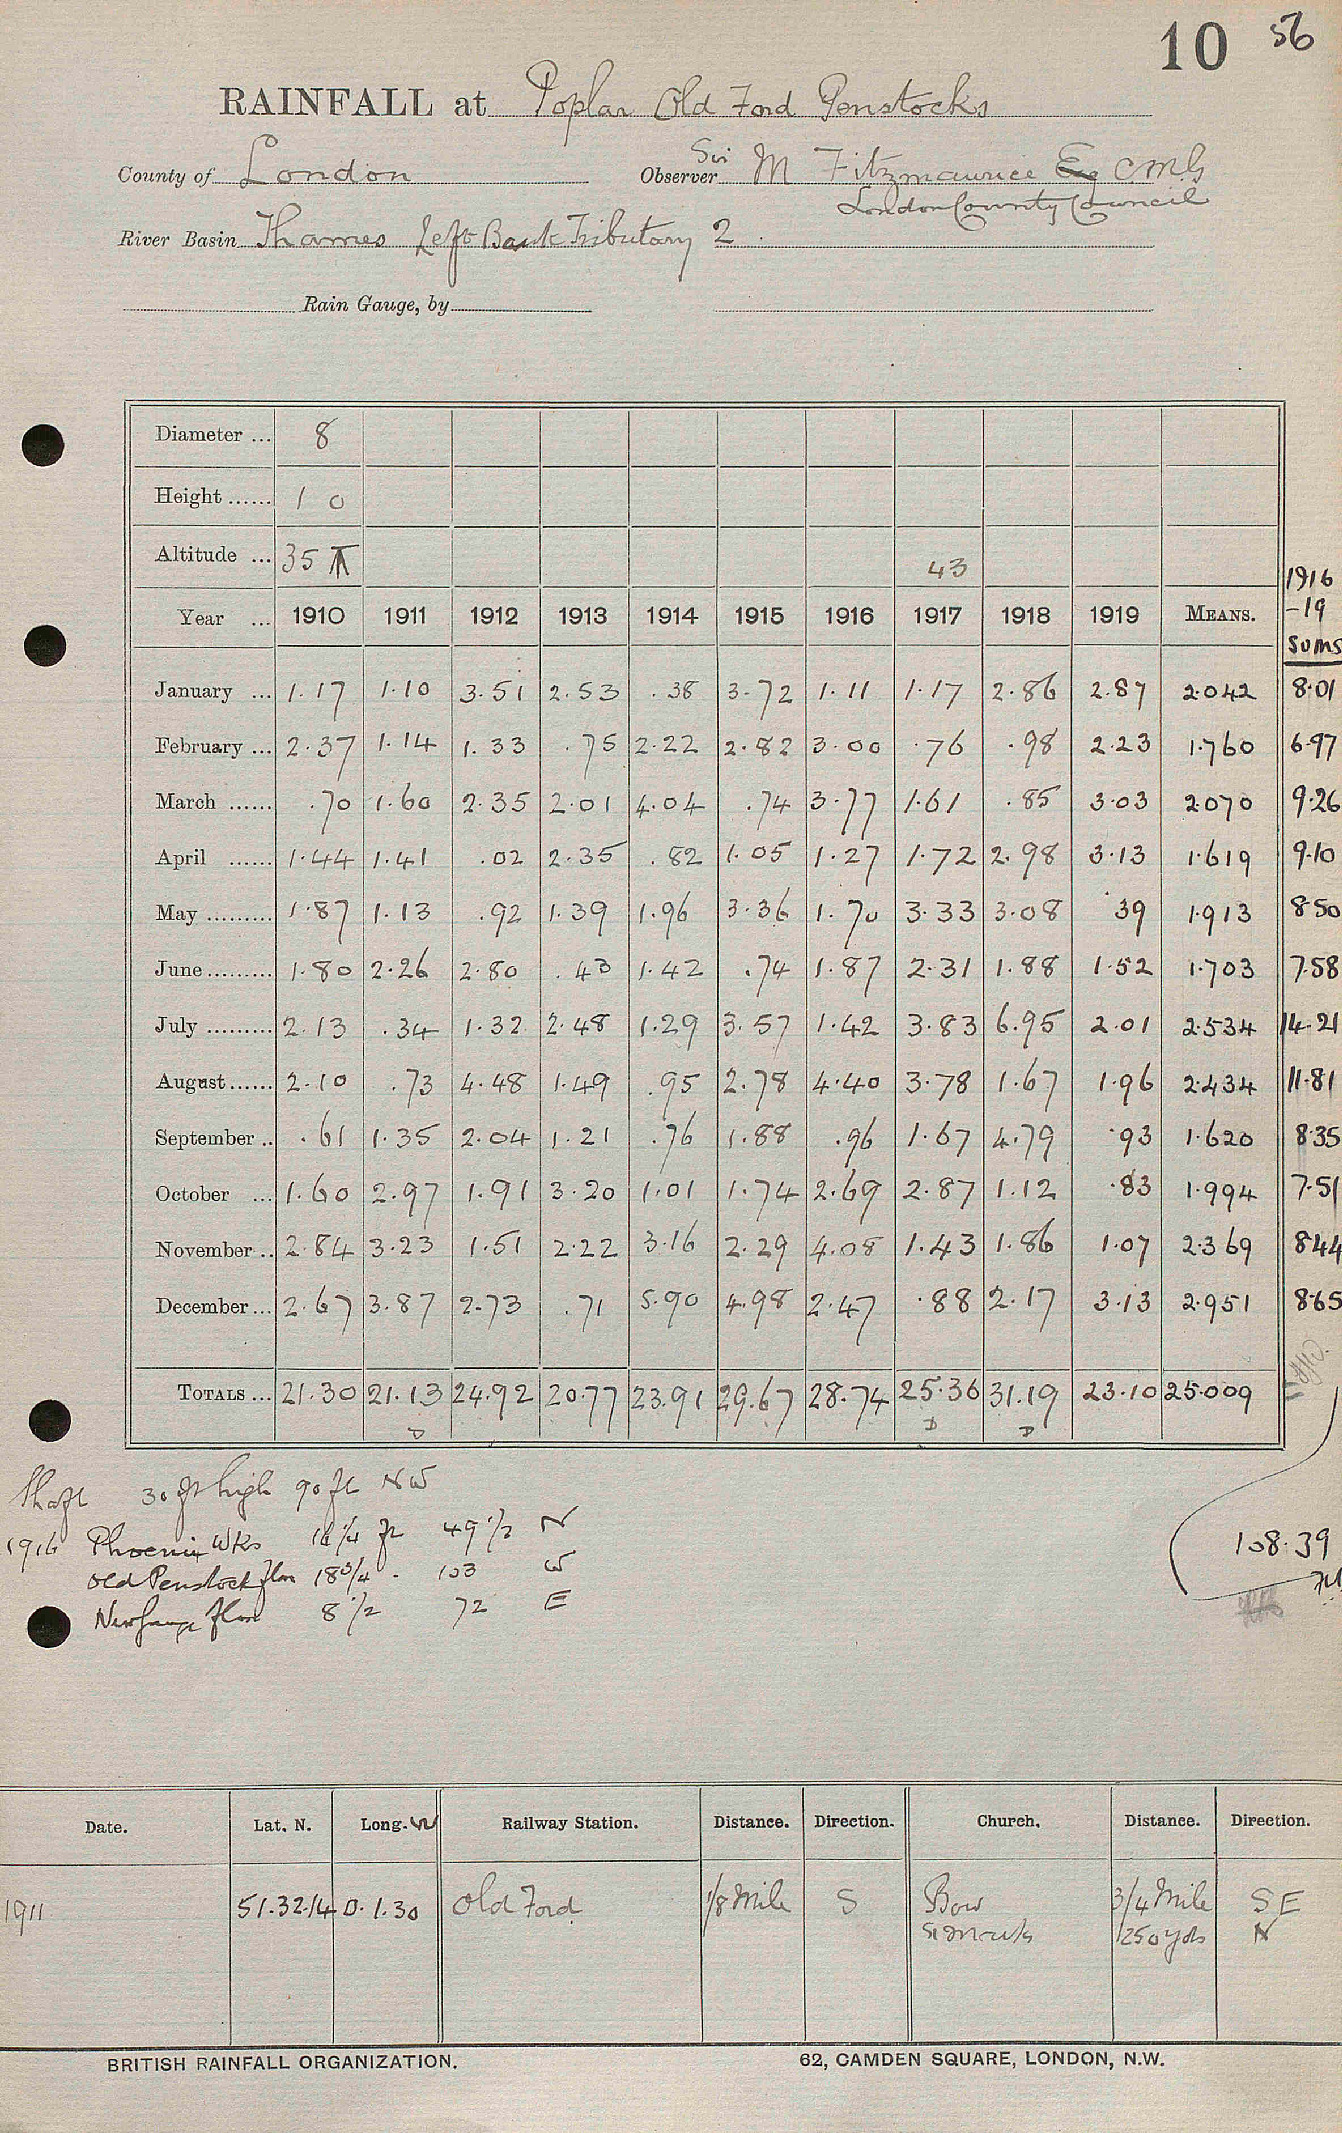 10 56
RAINFALL at Poplar Old Ford Penstocks
County of London Observer Sir M Fitzmaurice Esq CMG
London County Council
River Basin Thames Left Bank Tributary 2
Rain Gauge, by
Diameter ... 8
Height ...... 1 0
Altitude ... 35 43
Year ... 1910 1911 1912 1913 1914 1915 1916 1917 1918 1919 MEANS. 1916 -19 SUMS
January ... 1.17 1.10 3.51 2.53 .38 3.72 1.11 1.17 2.86 2.87 2.042 8.01
February ... 2.37 1.14 1.33 .75 2.22 2.82 3.00 .76 .98 2.23 1.760 6.97
March ...... .70 1.60 2.35 2.01 4.04 .74 3.77 1.61 .85 3.03 2.070 9.26
April ...... 1.44 1.41 .02 2.35 .82 1.05 1.27 1.72 2.98 3.13 1.619 9.10
May ......... 1.87 1.13 .92 1.39 1.96 3.36 1.70 3.33 3.08 .39 1.913 8.50
June ......... 1.80 2.26 2.80 .43 1.42 .74 1.87 2.31 1.88 1.52 1.703 7.58
July ......... 2.13 .34 1.32 2.48 1.29 3.57 1.42 3.83 6.95 2.01 2.534 14.21
August ...... 2.10 .73 4.48 1.49 .95 2.78 4.40 3.78 1.67 1.96 2.434 11.81
September .. .61 1.35 2.04 1.21 .76 1.88 .96 1.67 4.79 .93 1.620 8.35
October ... 1.60 2.97 1.91 3.20 1.01 1.74 2.69 2.87 1.12 .83 1.994 7.51
November .. 2.84 3.23 1.51 2.22 3.16 2.29 4.08 1.43 1.86 1.07 2.369 8.44
December ... 2.67 3.87 2.73 .71 5.90 4.98 2.47 .88 2.17 3.13 2.951 8.65
TOTALS ... 21.30 21.13 24.92 20.77 23.91 29.67 28.74 25.36 31.19 23.10 25.009
D D D
Shaft 30 ft high 90 ft NW
1916 Phoenix Wks 16 1/4 ft 49 1/2 N
Old Penstock 18 3/4 - 103 W
8 1/2 72 E
108.39
Date. Lat. N. Long. W Railway Station. Distance. Direction. Church. Distance. Direction.
1911 51.32.14 0.1.30 Old Ford 1/8 Mile S Bow 3/4 Mile SE
St Marks 250 yds N
BRITISH RAINFALL ORGANIZATION. 62, CAMDEN SQUARE, LONDON, N.W.